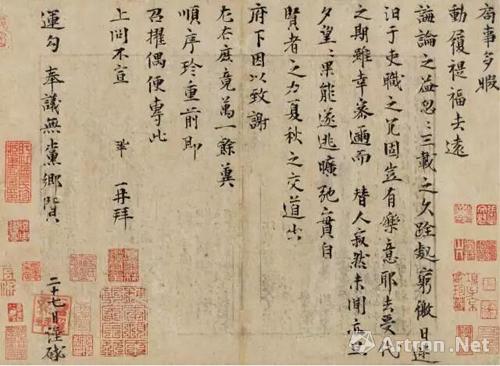 局事多暇
動履禔福去遠
誨論之益忽忽三載之久跧處窮徼日迷
汩于吏職之冗固豈有樂意耶去受代
之期雖幸密邇而替人寂然未聞亦旦
夕望望果能遂逃曠弛實自
賢者之力夏秋之交道出
府下因以致謝
左右庶竟萬一餘冀
順序珍重前即
召擢偶便專此
上問不宣 鞏 再拜
運勾 奉議無黨鄉賢
二十七日謹啓
Artron.Net